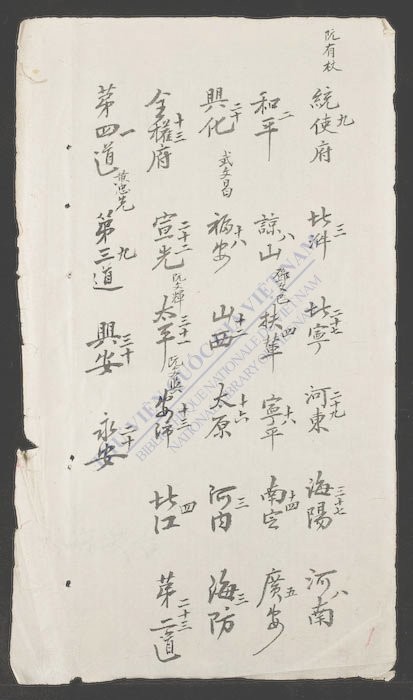 阮有杖
統使府九 北𣴓三 北寧二十七 河東二十九 海陽三十七 河南八
和平二 諒山八 扶莘四 寧平十六 南定十四 廣安五
興化二十 武文昌 福安十八 山西十二 太原十六 河内三 海防三
全權府十三 宣光二十二 阮文輝 太平三十一 安沛十三 北江四 第二道二十三
第四道一 黃忠先 第三道九 興安三十 永安二十
THƯ VIỆN QUỐC GIA VIỆT NAM
BIBLIOTHÈQUE NATIONALE DU VIETNAM
NATIONAL LIBRARY OF VIETNAM